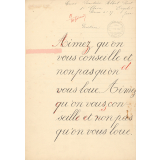 Aimez qu'on
vous conseille et
non pas qu'on
vous loue. Aimez
qu'on vous con-
seille et non pas
qu'on vous loue.